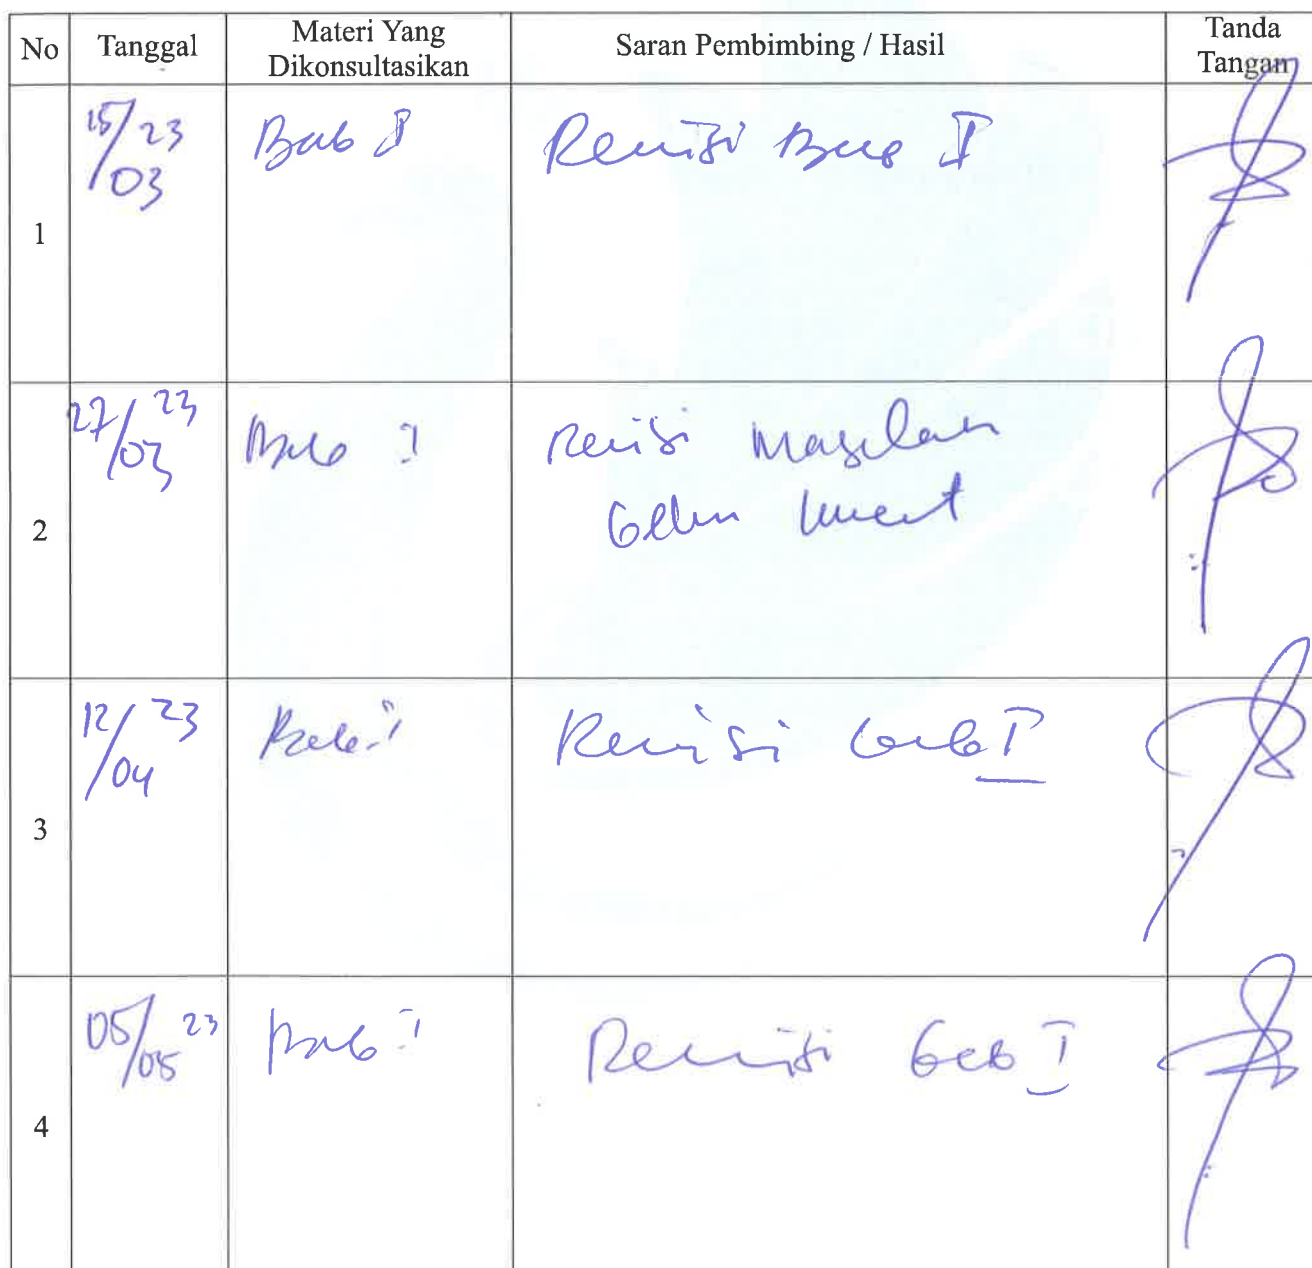 No Tanggal Materi Yang Dikonsultasikan Saran Pembimbing / Hasil Tanda Tangan
1 15/03 23 Bab I Revisi Bab I
2 27/03 23 Bab I Revisi Masalah
belum
3 12/04 23 Bab I Revisi bab I
4 05/05 23 Bab I Revisi bab I